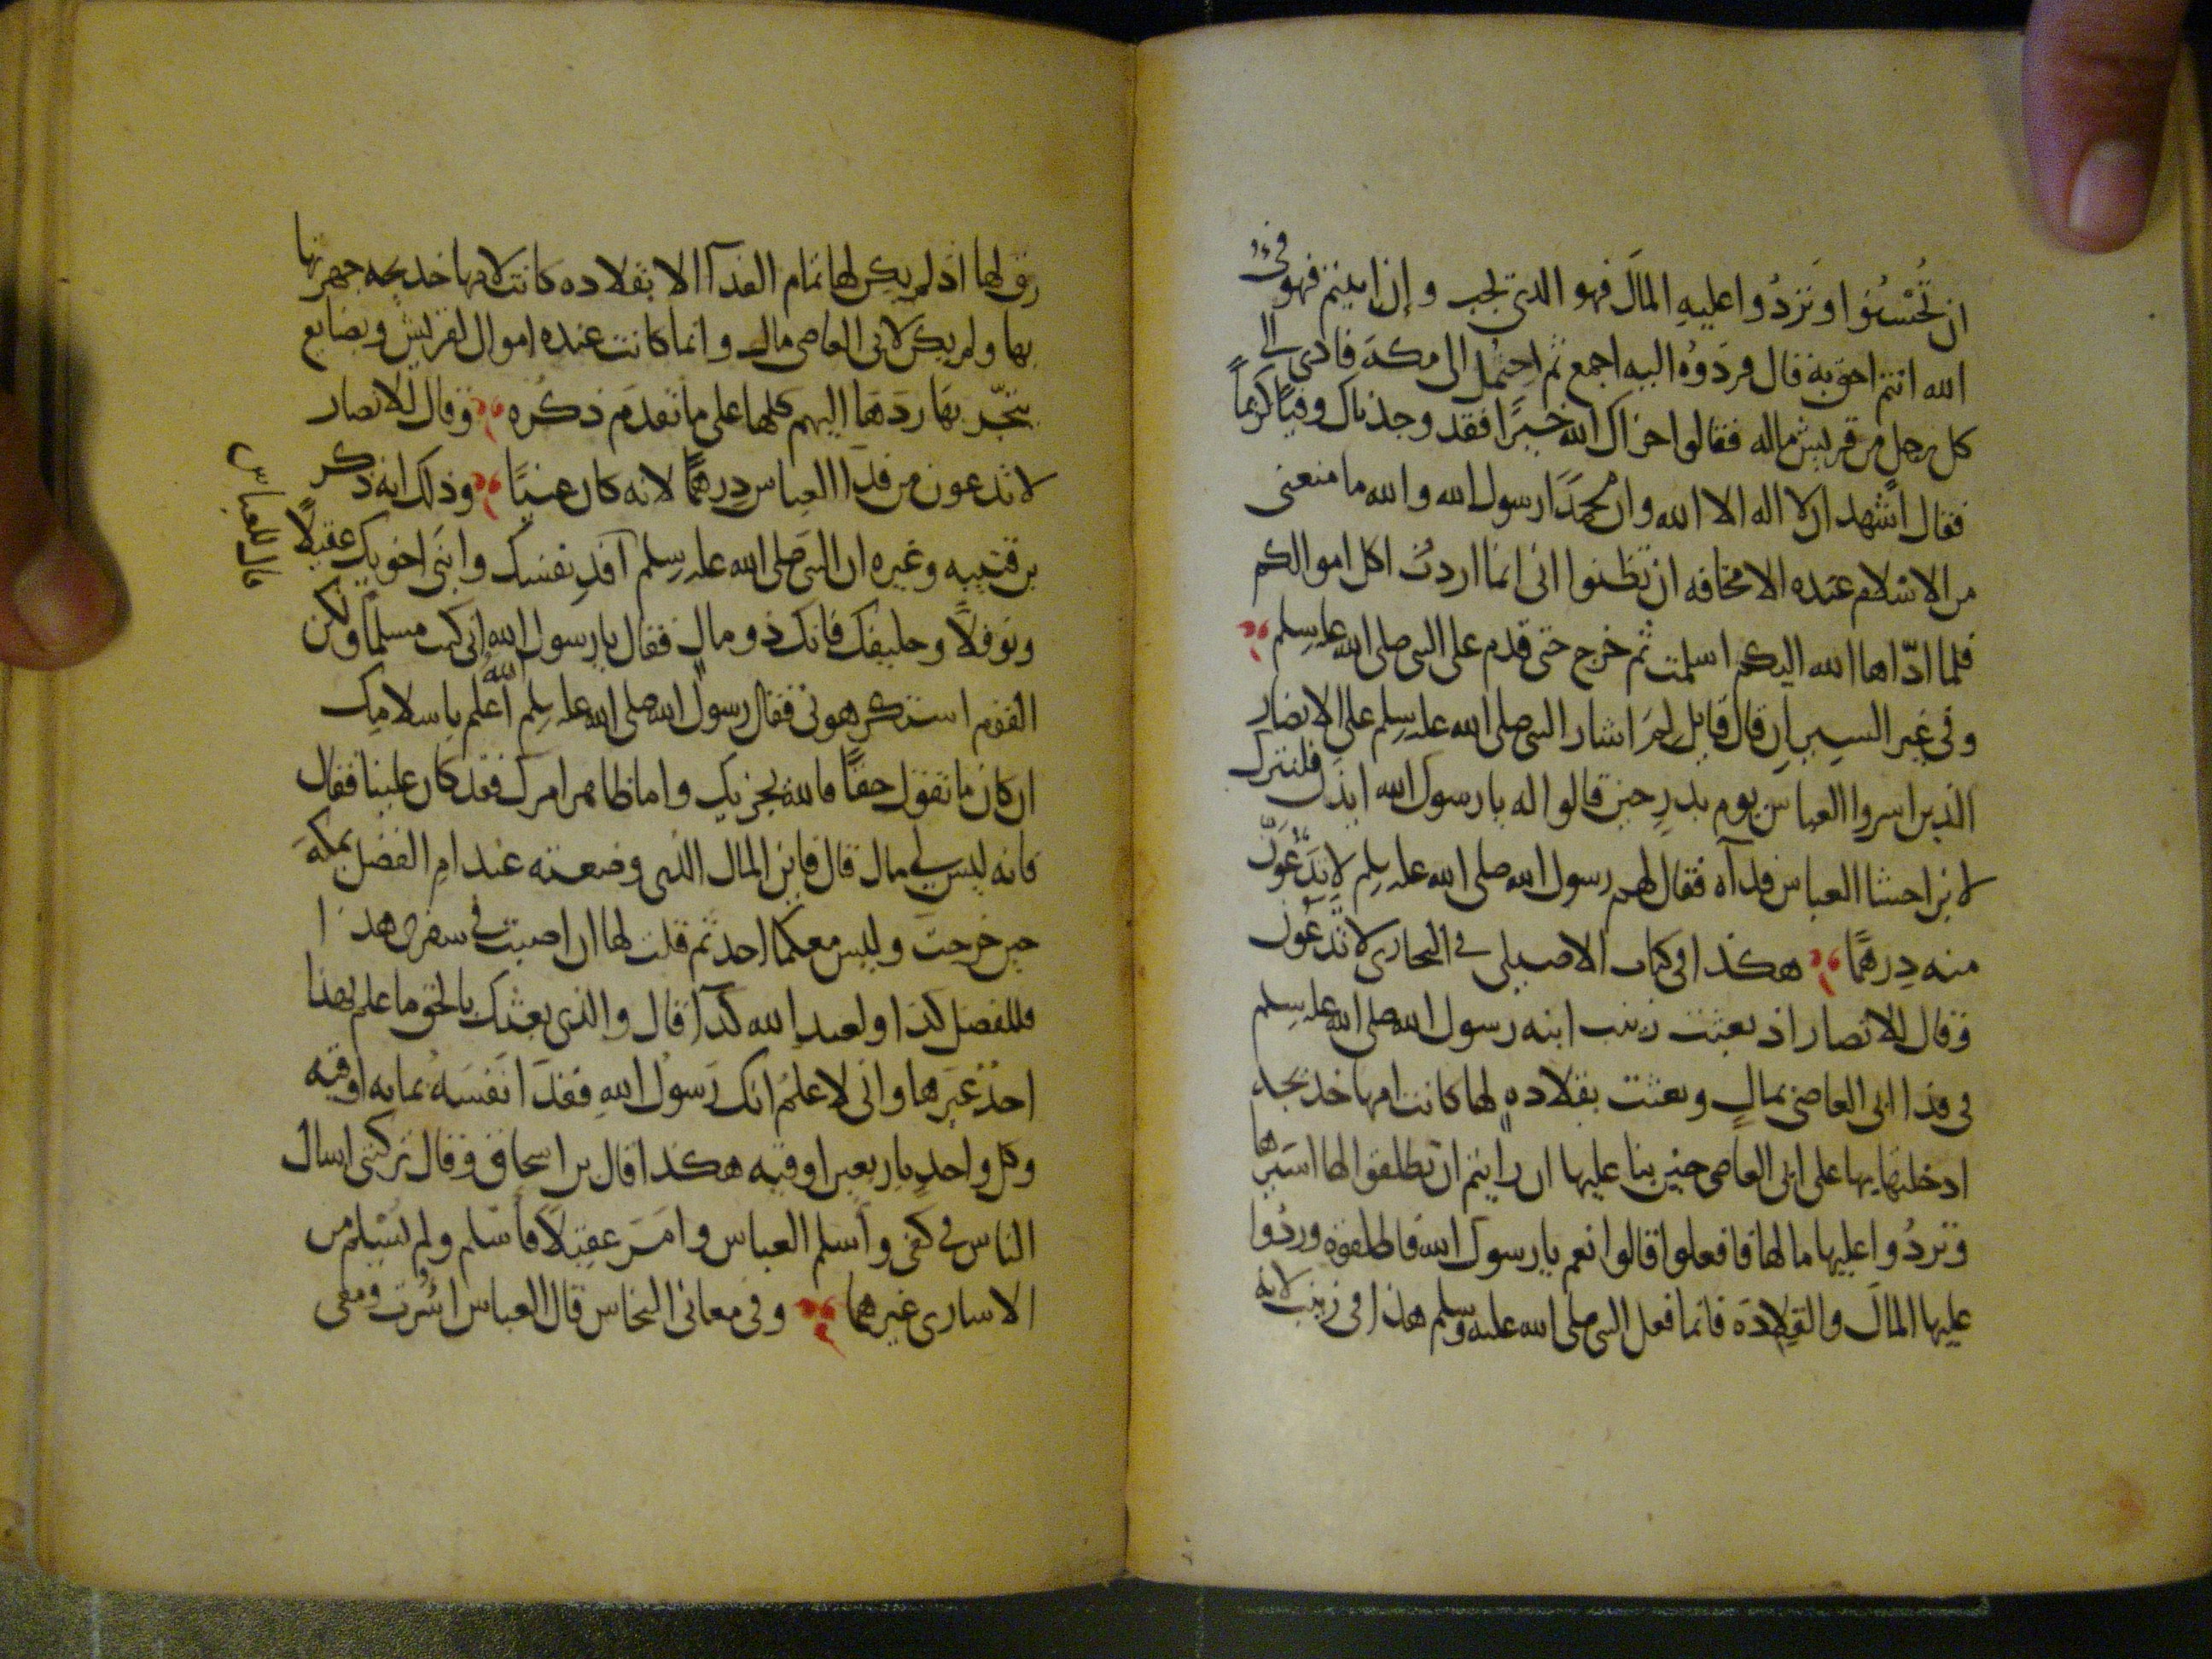 ان تُحْسِنُوا وتَردُّوا عليهِ المالَ فهو الذي نحب وإن ابيتم فهو فئ
الله انتم احق به قال فردّوُه اليه اجمع ثم احتمل الى مكة فادى الى
كل رجلٍ من قريش ماله فقالوا جزاك الله خيرًا فقد وجدناك وفيًّا كريمًا
فقال اشهد ان لا اله الا الله وان محمدًا رسول الله والله ما منعني
من الاسلام عنده الا مخافه ان تظنوا اني انما اردتُ اكل اموالكم
فلما ادّاها الله اليكم اسلمت ثم خرج حتى قدم على النبي صلى الله عليه وسلم
وفي غير السير ان قال قايل لم اشار النبي صلى الله عليه وسلم على الانصار
الذين اسروا العباس يوم بدرٍ حين قالوا له يا رسول الله ايذن فلنترك
لابن اختنا العباس فدآه فقال لهم رسول الله صلى الله عليه وسلم لا يَدَعُوَنّ
منه دِرهمًا هكذا في كتاب الاصيلي في البخاري لا تَدَعُون
وقال للانصار اذ بعثت زينب ابنه رسول الله صلى الله عليه وسلم
في فدا ابي العاصي بمالٍ وبعثت بقلادهٍ لها كانت امها خديجه
ادخلتها بها على ابي العاصي حين بنا عليها ان رايتم ان تطلقوا لها اسيرها
وتردُوا عليها مالها فافعلوا قالوا نعم يا رسول الله فاطلقوه وردُوا
عليها المالَ والقِلادَة فانما فعل النبي صلى الله عليه وسلم هذا في زينب لانه
رق لها اذ لم يكن لها تمام الفدآ الا بقلاده كانت لامها خديجه جهزتها
بها ولم يكن لابي العاصي مال وانما كانت عنده اموال لقريش وبضايع
يتجّر بها ردها اليهم كلها على ما تقدم ذكره وقال للانصار
لا تدعون من فدآ العباس دِرهمًا لانه كان غنيًا وذلك انه ذكر
بن قتيبه وغيره ان النبي صلى الله عليه وسلم افدِ نفسك وابنَي اخويك عقيلاً
قال للعباس
ونوفلاً وحليفك فانك ذو مالٍ فقال يا رسول الله اني كنت مسلمًا ولكن
القوم استكرهوني فقال رسول الله صلى الله عليه وسلم الله اعلم باسلامك
ان كان ما تقول حقًا فالله يجزيك واما ظاهر امرك فقد كان علينا فقال
فانه ليس لي مال قال فاين المال الذي وضعته عند ام الفضل بمكة
حين خرجت وليس معكما احد ثم قلت لها ان اصبت في سفري هذا
فللفضل كذا ولعبد الله كذا قال والذي بعثك بالحق ما علم بهذا
احدٌ غيرها واني لاعلمُ انك رَسولُ اللهِ ففدَا نفسَه بمايه اوقيه
وكل واحدٍ باربعين اوقيه هكذا قال بن اسحاق وقال تركتني اسال
الناس في كفي واسلم العباس وامَرَ عقيلاً فاسلم ولم يُسْلِم من
الاسارى غيرهما وفي معاني النحاس قال العباس اُسِرت ومعي